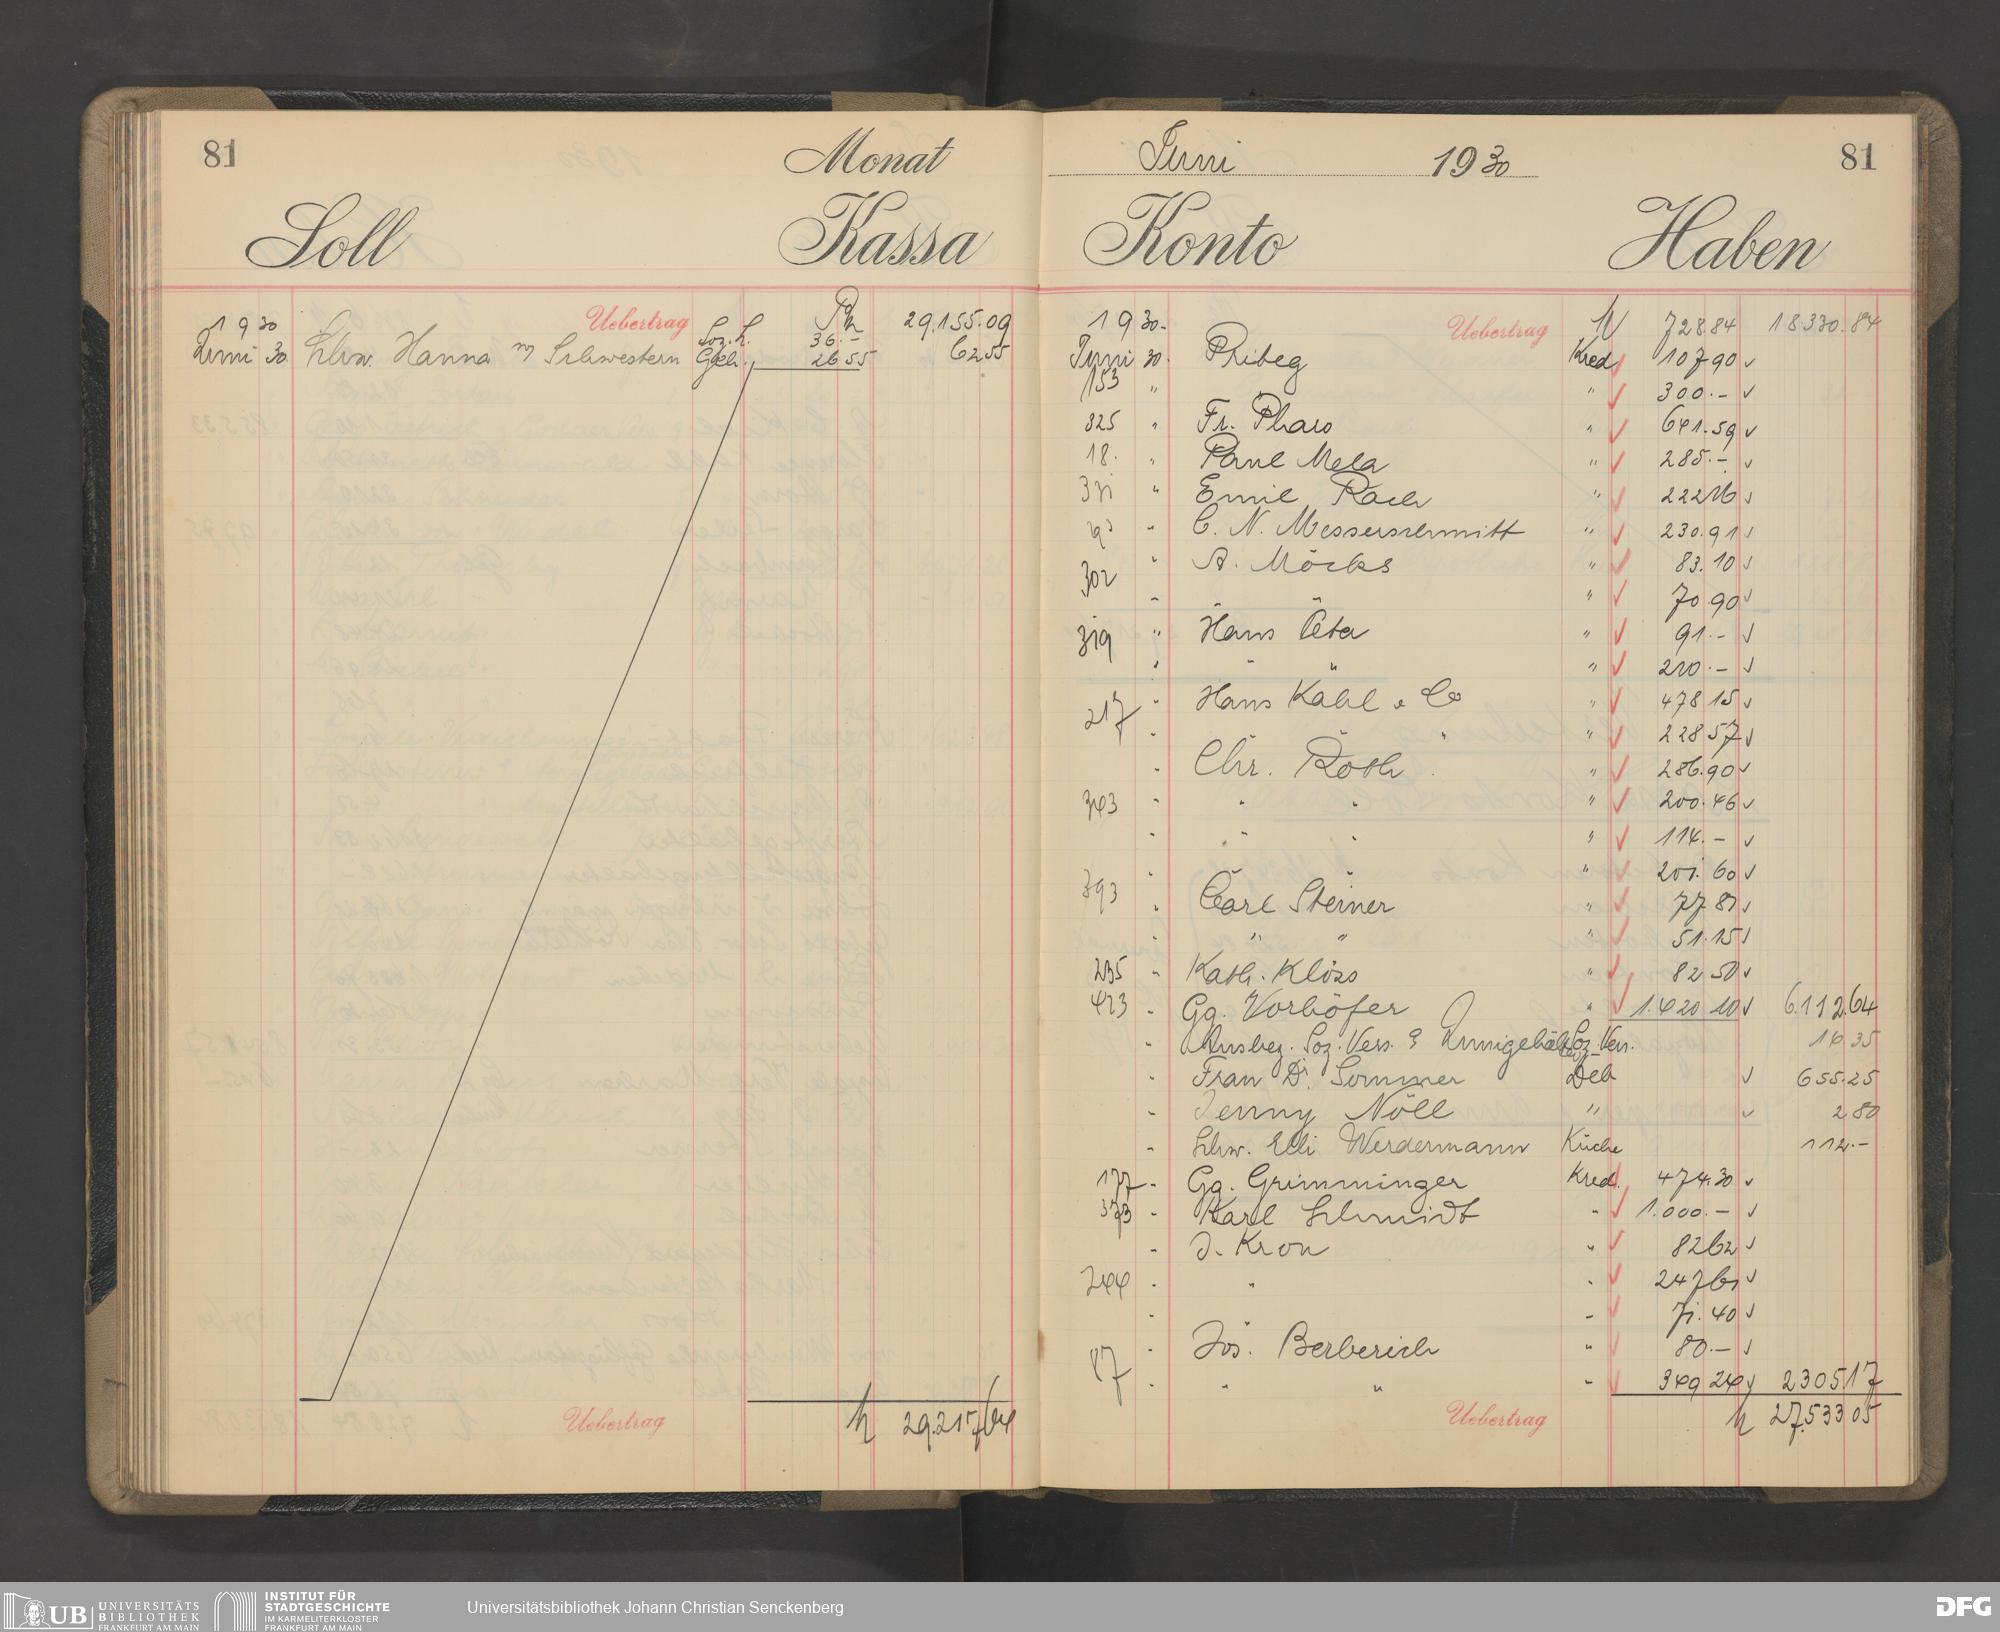 81 Monat
Soll Kassa
Uebertrag 29,155.09
1930 Soz. L. 36.–
Juni 30. Schw. Hanna Schwestern Geh. 26 55 62.55
Uebertrag 29.217,64
Juni 1930 81
Konto Haben
1930. Uebertrag 728.84 18330.84
Juni 30. Phibeg Kred 107 90
153 " " 300.–
325 " Fr. Pharo " 641.59
18. " Paul Mela " 285.–
331 " Emil Rach " 222 16
" C. N. Messerschmitt " 230.91
302 " A. Möcks " 83.10
" " 70.90
319 " Hans Beta " 91.–
" " " " 210.–
217 " Hans Kahl & Co " 478 15
" " " 228 57
" Chr. Roth " 286.90
343 " " " " 200.46
" " " " 114.–
" " 201.60
393 " Carl Steiner " 77 81
" " " " 51.15
235 " Kath. Klöss " 82 50
423 " Gg. Vorhöfer " 1.420 10 6.112.64
" Ausbez. Soz. Vers. Junigehälter Soz. Vers. 16 35
" Frau Dr. Sommer Deb 655.25
" Jenny Nöll " 2 80
" Schw. Elli Werdermann Küche 112.–
177 " Gg. Grimminger Kred. 474.30
373 " Karl Schmidt " 1.000.–
" J. Kron " 82 62
244 " " " 247 61
" " 71.40
87 " Jos. Berberich " 80.–
" " " " 349 24 2305 17
Uebertrag 27.533 05
UB UNIVERSITÄTS
BIBLIOTHEK
FRANKFURT AM MAIN
INSTITUT FÜR
STADTGESCHICHTE
IM KARMELITERKLOSTER
FRANKFURT AM MAIN
Universitätsbibliothek Johann Christian Senckenberg
DFG